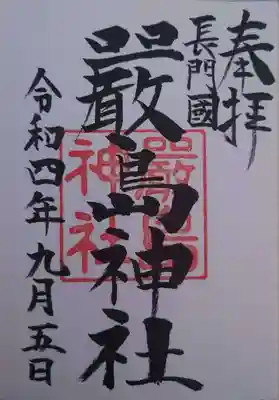 奉拝
長門國
嚴島神社
令和四年九月五日
嚴島
神社